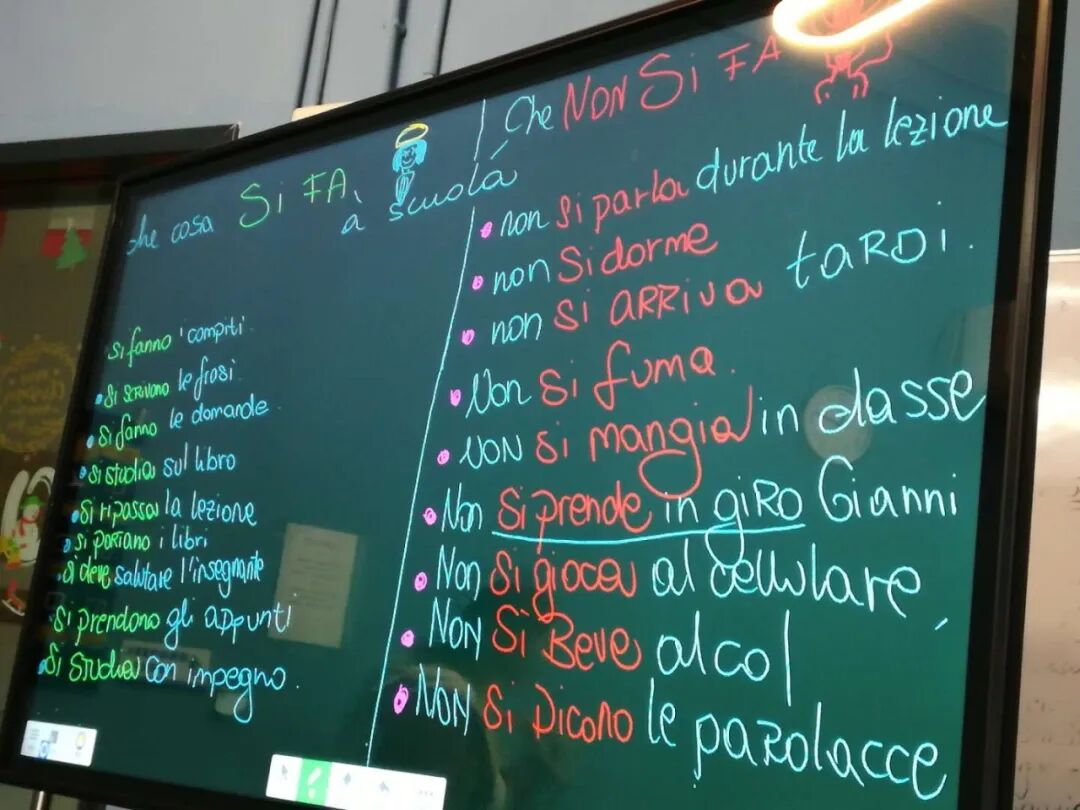 che cosa Si FA
a scuola
si fanno i compiti
si scrivono le frasi
si fanno le domande
si studia sul libro
si ripassa la lezione
si portano i libri
si deve salutare l'insegnante
si prendono gli appunti
Si studia con impegno.
Che NON Si FA
non si parla durante la lezione
non Si dorme
non Si ARRIVA tARDi.
Non Si fuma.
NON si mangia in classe
Non Si prende in giRO Gianni
Non Si gioca al cellulare
NON Si Beve alcol
NON Si Dicono le paRolacce